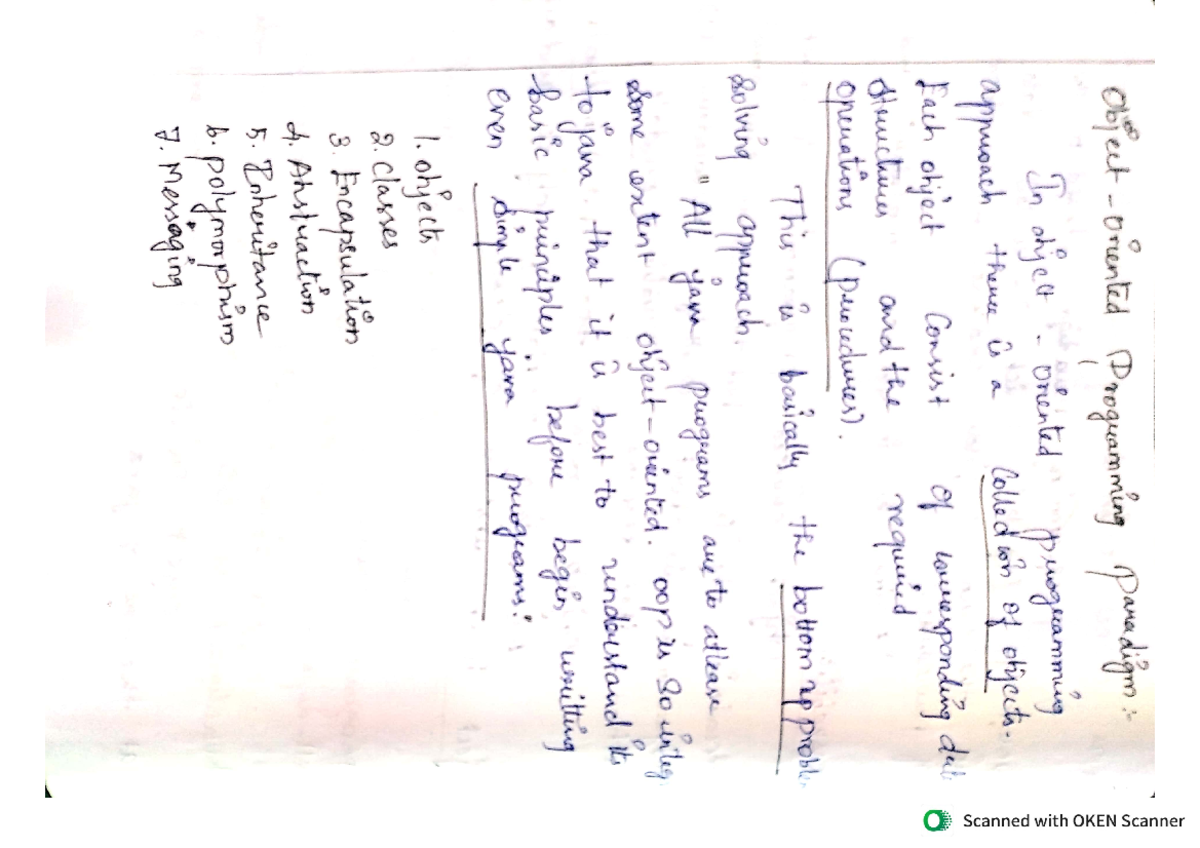 Object-oriented Programming Paradigm :-
In object-oriented programming
approach there is a collection of objects.
Each object consist of corresponding dat
structures and the required
operations (procedures).
This is basically the bottom up proble
solving approach.
"All java programs are to atlease
some extent object-oriented. oop is so integ
to java that it is best to understand its
basic principles before begin writting
even simple java programs."
1. objects
2. classes
3. Encapsulation
4. Abstraction
5. Inheritance
6. polymorphism
7. Messaging
Scanned with OKEN Scanner